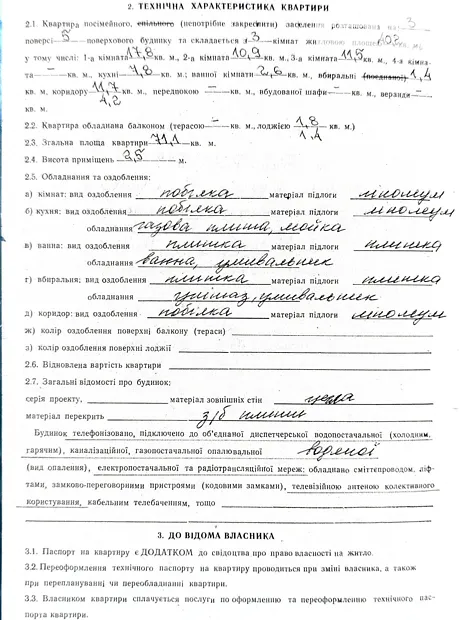 2. ТЕХНІЧНА ХАРАКТЕРИСТИКА КВАРТИРИ
2.1. Квартира посімейного, спільного (непотрібне закреслити) заселення розташована на 3
поверсі 5 поверхового будинку та складається з 3 кімнат житловою площею 40,2 кв. м,
у тому числі: 1-а кімната 17,8 кв. м., 2-а кімната 10,9 кв. м., 3-а кімната 11,5 кв. м., 4-а кімна-
та — кв. м., кухні 7,8 кв. м.; ванної кімнати 2,6 кв. м., вбиральні (поєднаної) 1,4
кв. м. коридору 11,7 кв. м., передпокою — кв. м., вбудованої шафи — кв. м., веранди —
кв. м. 4,2
2.2. Квартира обладнана балконом (терасою — кв. м., лоджією 1,8 кв. м.)
1,4
2.3. Згальна площа квартири 71,1 кв. м.
2.4. Висота приміщень 2,5 м.
2.5. Обладнання та оздоблення:
а) кімнат: вид оздоблення побілка матеріал підлоги лінолеум
б) кухня: вид оздоблення побілка матеріал підлоги лінолеум
обладнання газова плита, мойка
в) ванна: вид оздоблення плитка матеріал підлоги плитка
обладнання ванна, умивальник
г) вбиральня; вид оздоблення плитка матеріал підлоги плитка
обладнання унітаз, умивальник
д) коридор: вид оздоблення побілка матеріал підлоги лінолеум
ж) колір оздоблення поверхні балкону (тераси)
з) колір оздоблення поверхні лоджії
2.6. Відновлена вартість квартири
2.7. Загальні відомості про будинок:
серія проекту, матеріал зовнішніх стін цегла
матеріал перекрить з/б плити
Будинок телефонізовано, підключено до об'єднаної диспетчерської водопостачальної (холодним,
гарячим), каналізаційної, газопостачальної опалювальної водяної
(вид опалення), електропостачальної та радіотрансляційної мереж: обладнано сміттепроводом, ліф-
тами, замково-переговорними пристроями (кодовими замками), телевізійною антеною колективного
користування, кабельним телебаченням, тощо
3. ДО ВІДОМА ВЛАСНИКА
3.1. Паспорт на квартиру є ДОДАТКОМ до свідоцтва про право власності на житло.
3.2. Переоформлення технічного паспорту на квартиру проводиться при зміні власника, а також
при переплануванні чи переобладнанні квартири.
3.3. Власником квартири сплачується послуги по оформленню та переоформленню технічного пас-
порта квартири.